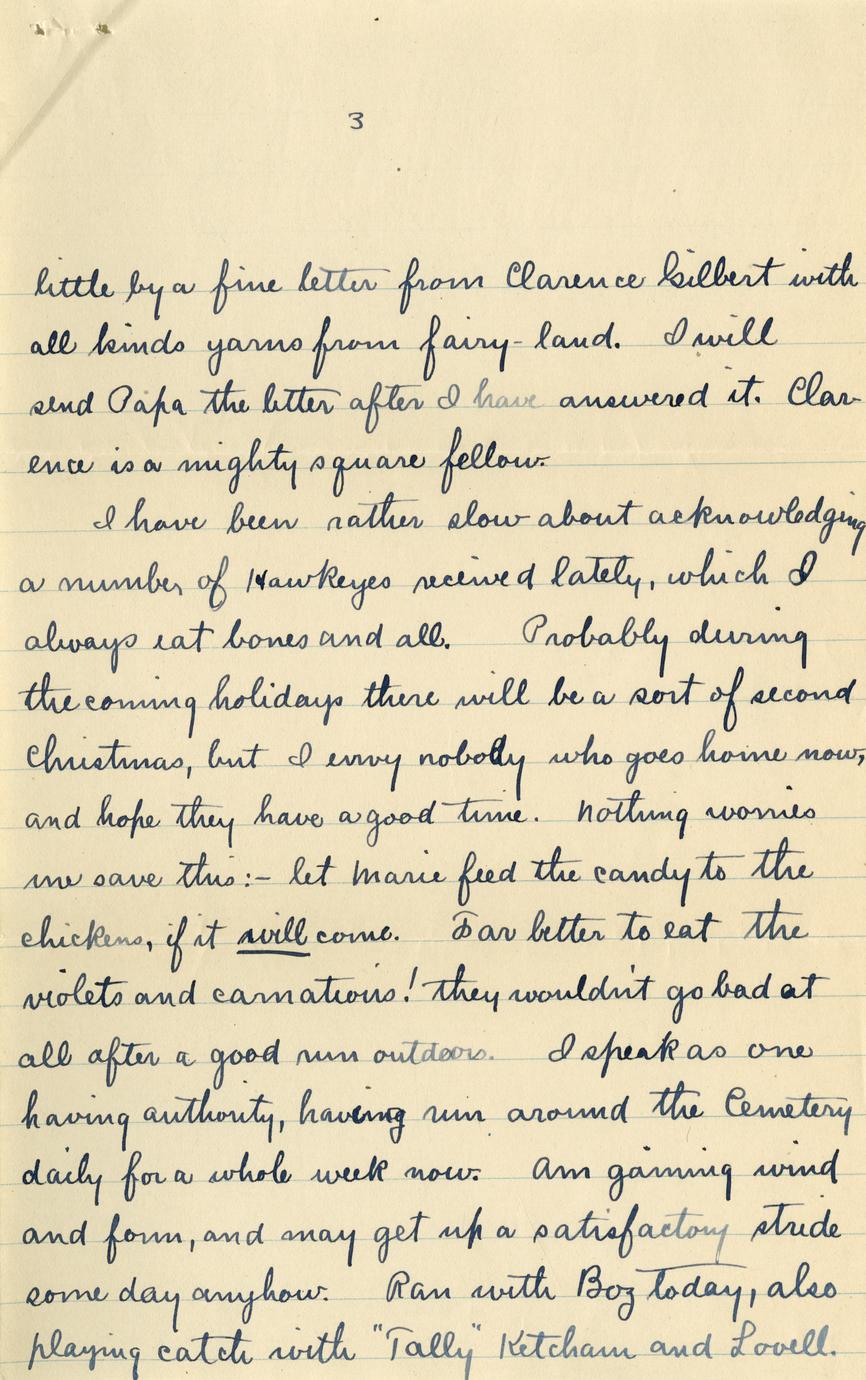 3
little by a fine letter from Clarence Gilbert with
all kinds yarns from fairy-land. I will
send Papa the letter after I have answered it. Clar-
ence is a mighty square fellow.
I have been rather slow about acknowledging
a number of Hawkeyes received lately, which I
always eat bones and all. Probably during
the coming holidays there will be a sort of second
Christmas, but I envy nobody who goes home now,
and hope they have a good time. Nothing worries
me save this:- let Marie feed the candy to the
chickens, if it will come. Far better to eat the
violets and carnations! they wouldn't go bad at
all after a good run outdoors. I speak as one
having authority, having run around the Cemetery
daily for a whole week now. Am gaining wind
and form, and may get up a satisfactory stride
some day anyhow. Ran with Boz today, also
playing catch with "Tally" Ketcham and Lovell.